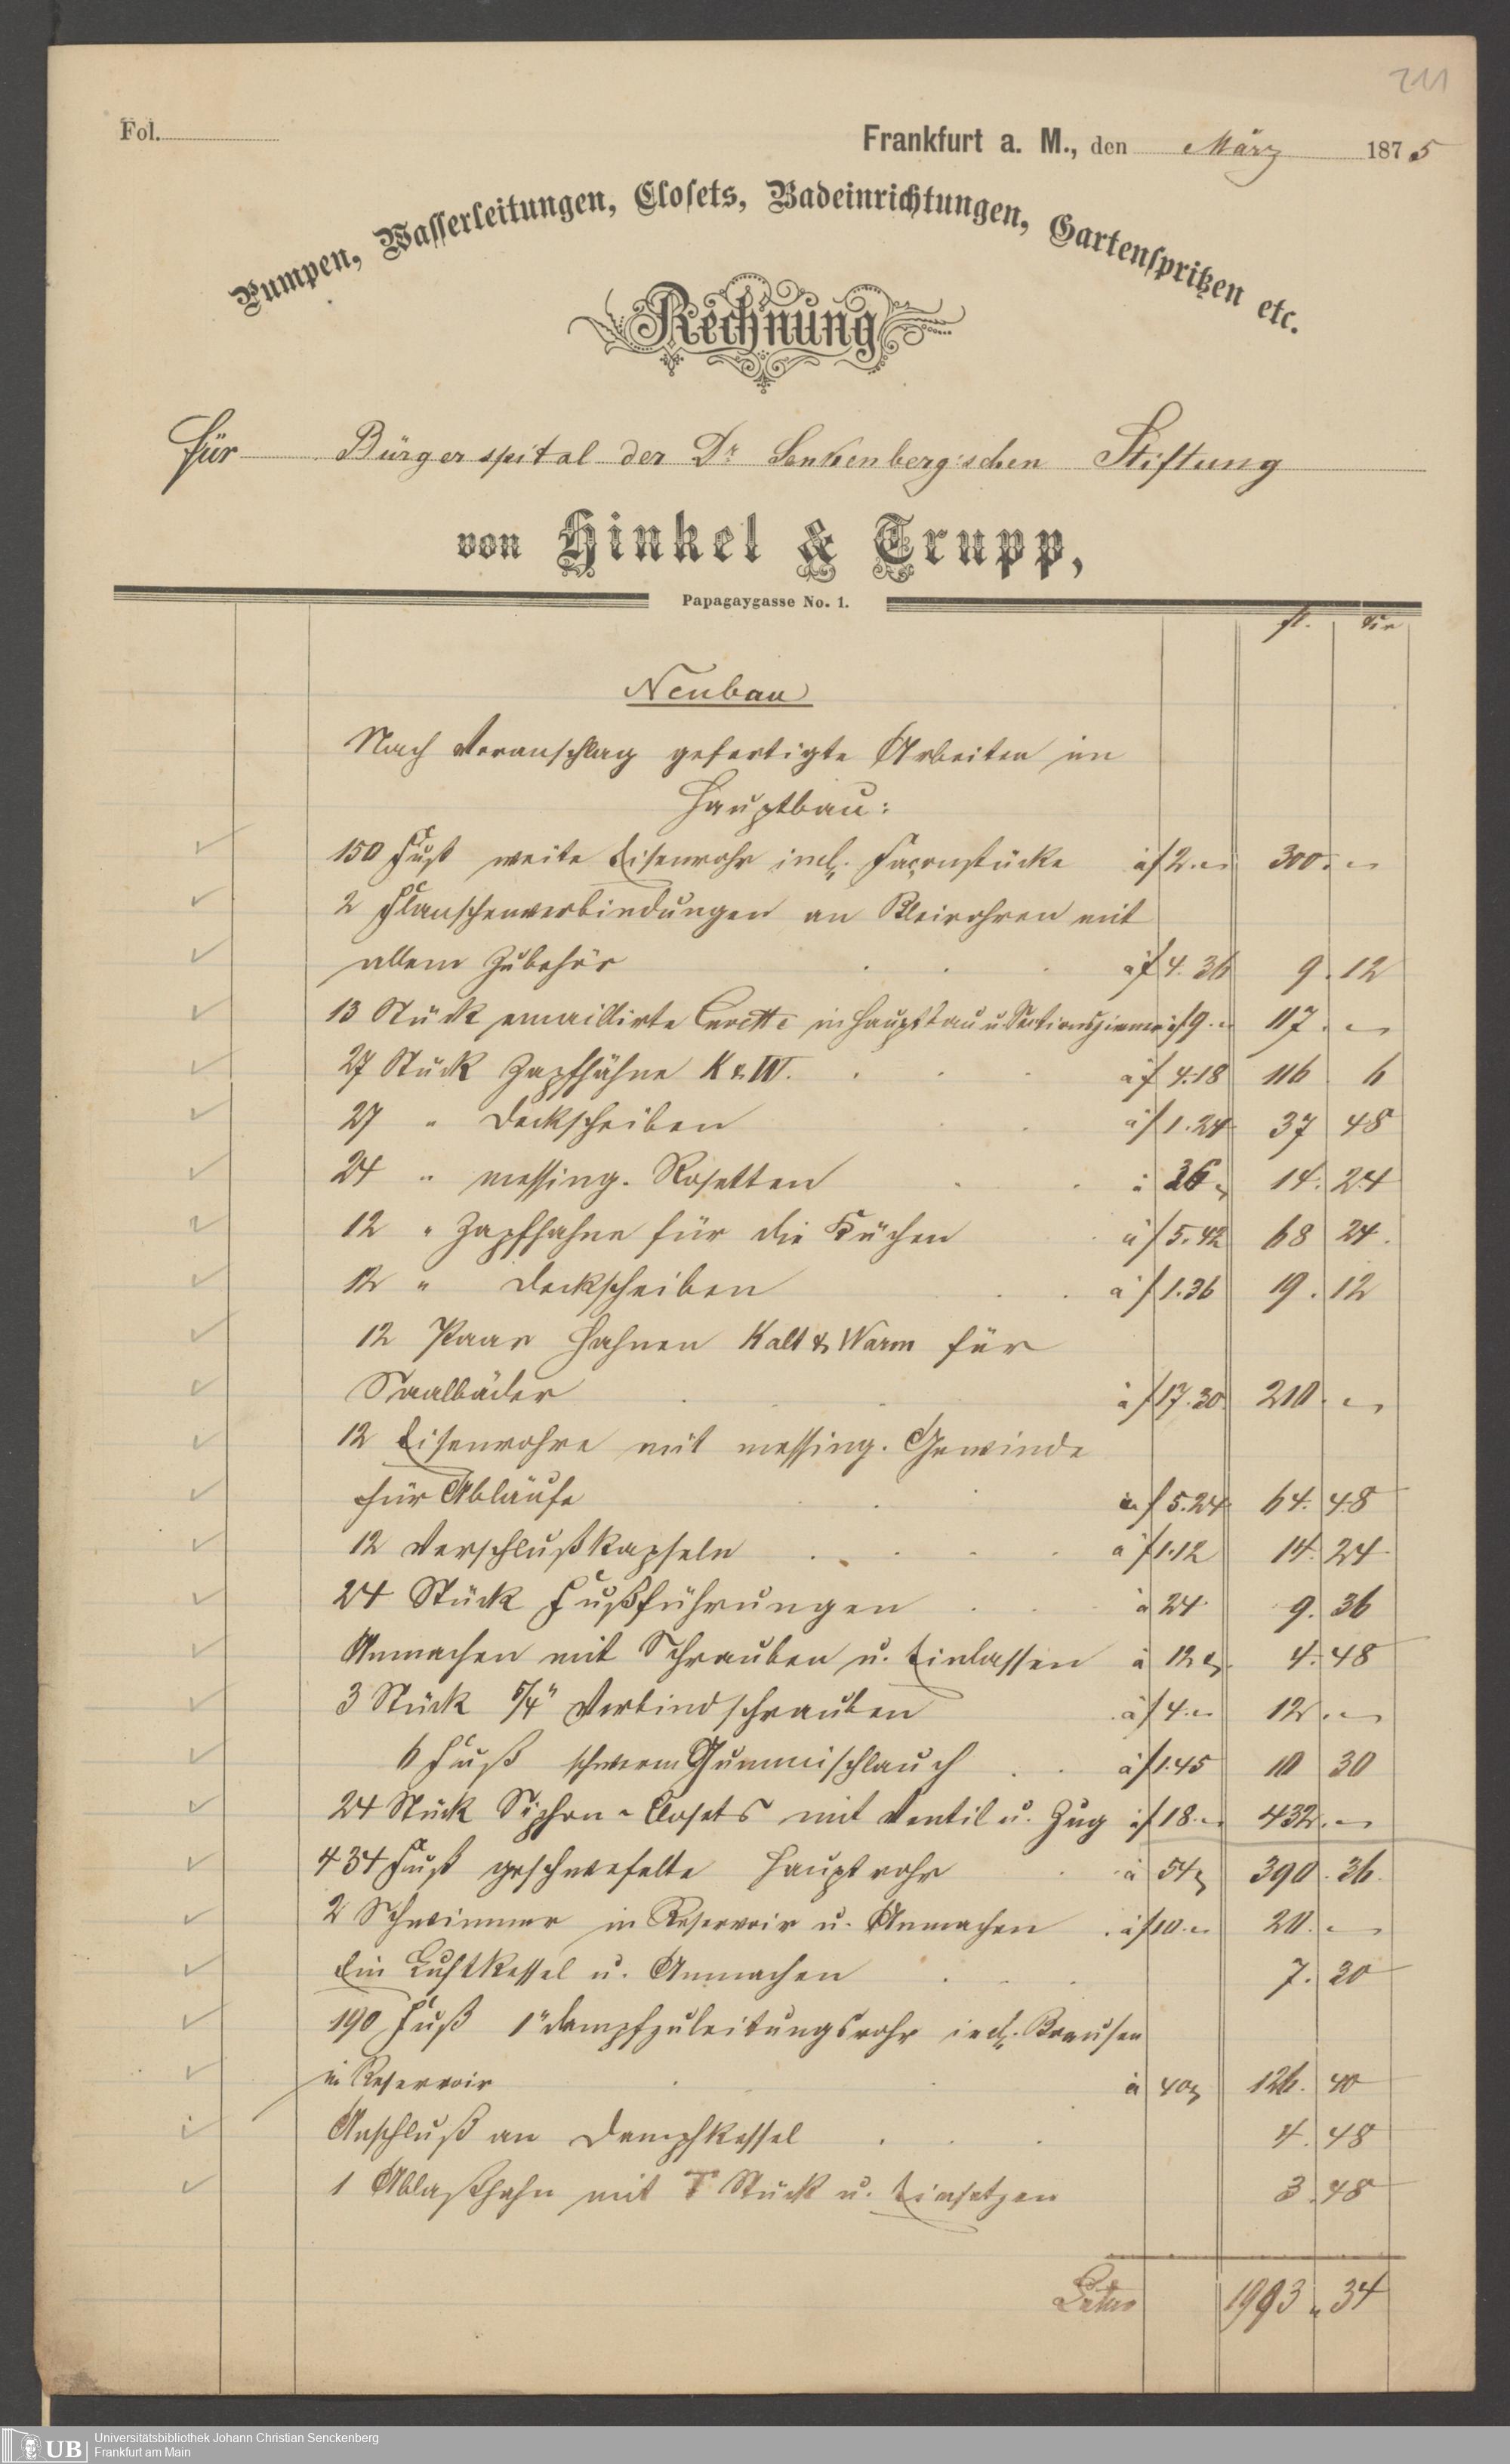 211
Fol.
Frankfurt a. M., den März 1875
Pumpen, Wasserleitungen, Closets, Badeinrichtungen, Gartenspritzen etc.
Rechnung
für Bürgerspital der Dr Senkenberg'schen Stiftung
von Hinkel & Trupp,
Papagaygasse No. 1.
fl. Xr
Neubau
Nach Voranschlag gefertigte Arbeiten im
Hauptbau:
150 Fuß weite Eisenrohr incl. Façonstücke à f 2.- 300.-
2 Flanschenverbindungen an Bleirohren mit
allem Zubehör à f 4.36 9.12
13 Stück emaillirte Cuvette in Hauptbau u Sectionszimmer à f 9.- 117.-
27 Stück Zapfhähne K & W. à f 4.18 116 6
27 " Deckscheiben à f 1.24 37 48
24 " messing. Rosetten à 36 14.24
12 " Zapfhahne für die Küchen à f 5.42 68 24.
12 " Deckscheiben à f 1.36 19.12
12 Paar Hahnen Kalt & Warm für
Saalbäder à f 17.30 210.-
12 Eisenrohre mit messing. Gewinde
für Abläufe à f 5.24 64.48
12 Verschlußkapseln à f 1.12 14.24
24 Stück Fußführungen à 24 9.36
Anmachen mit Schrauben u. Einlassen à 12 4.48
3 Stück 5/4" Verbindschrauben à f 4.- 12.-
6 Fuß schwerem Gummischlauch à f 1.45 10 30
24 Stück Siphon-Closets mit Ventil u. Zug à f 18.- 432.-
434 Fuß geschwefelte Hauptrohr à 54 390.36
2 Schwimmer in Reservoir u. Anmachen à f 10.- 20.-
Ein Luftkessel u. Anmachen 7.30
190 Fuß 1" Dampfzuleitungsrohr incl. Brausen
in Reservoir à 40 126.40
Anschluß an Dampfkessel 4.48
1 Ablaßhahn mit T Stück u. Einsetzen 3.48
Latus 1993 34
UB Universitätsbibliothek Johann Christian Senckenberg
Frankfurt am Main